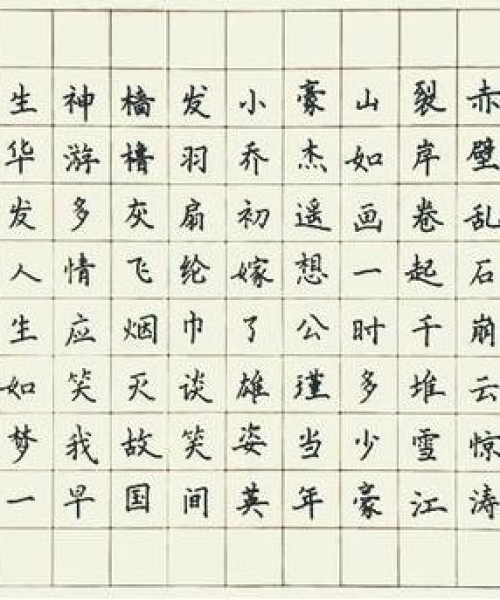 赤壁乱石崩云惊涛
裂岸卷起千堆雪江
山如画一时多少豪
豪杰遥想公瑾当年
小乔初嫁了雄姿英
发羽扇纶巾谈笑间
樯橹灰飞烟灭故国
神游多情应笑我早
生华发人生如梦一